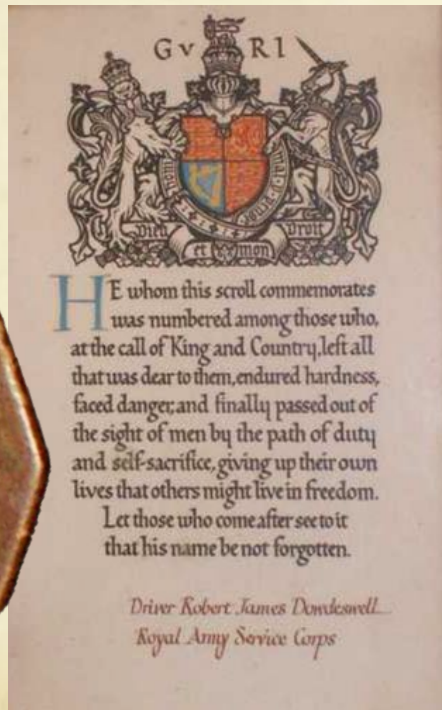 GvRI
Honi soit qui mal y pense
Dieu et mon Droit
HE whom this scroll commemorates
was numbered among those who,
at the call of King and Country, left all
that was dear to them, endured hardness,
faced danger, and finally passed out of
the sight of men by the path of duty
and self-sacrifice, giving up their own
lives that others might live in freedom.
Let those who come after see to it
that his name be not forgotten.
Driver Robert James Dowdeswell
Royal Army Service Corps